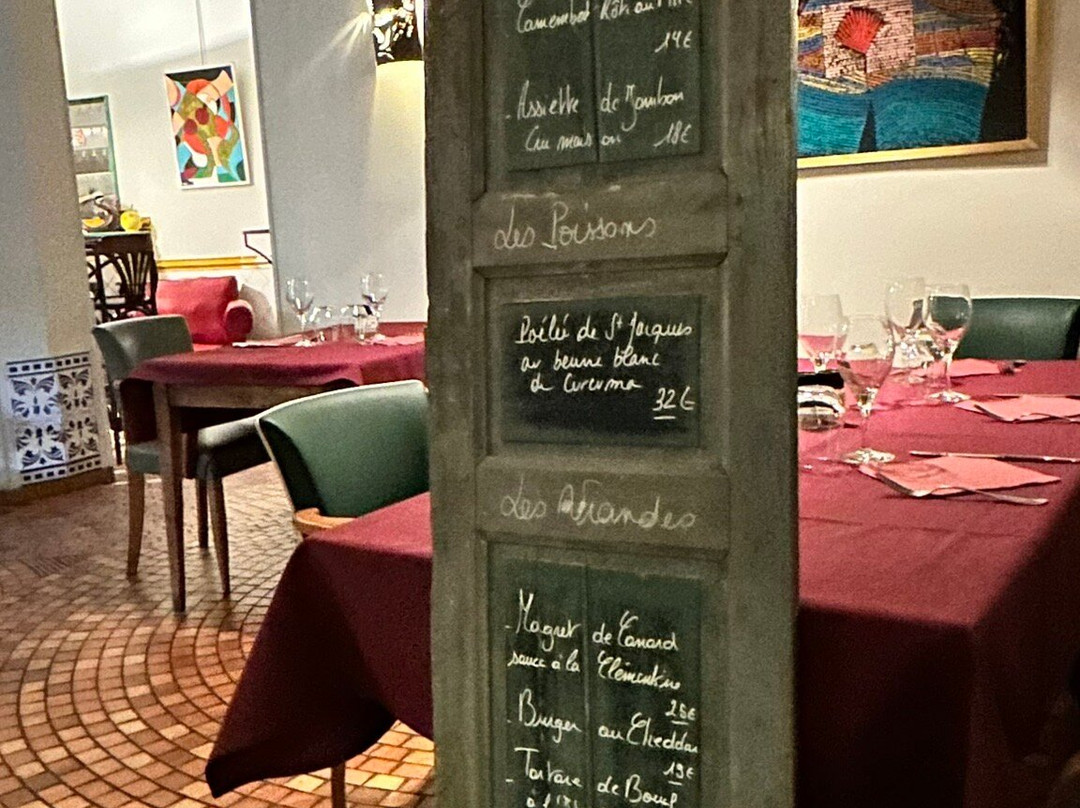 Camembert Rôti au
14€
- Assiette de Jambon
Cru maison 18€
Les Poissons
Poêlée de St Jacques
au beurre blanc
de Curcuma
32€
Les Viandes
- Magret de Canard
sauce à la Clémentine
26€
- Burger au Cheddar
19€
- Tartare de Boeuf